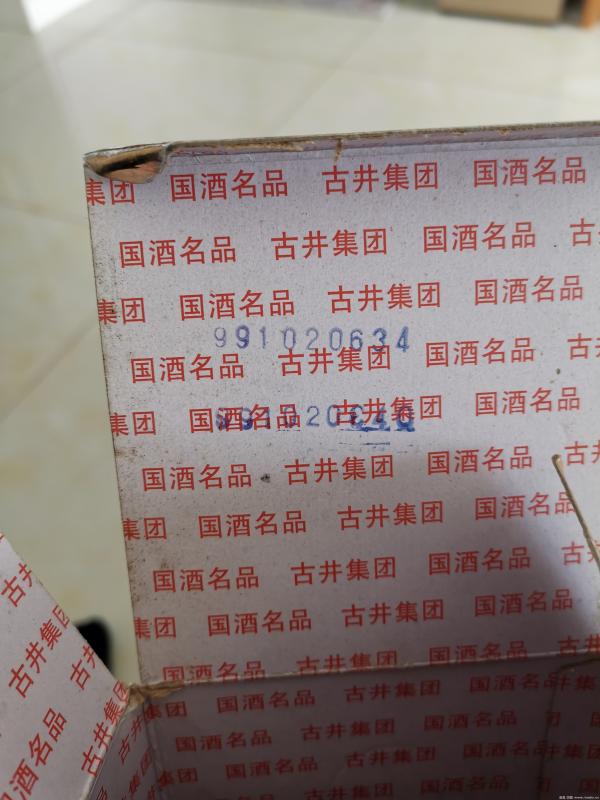 集团 国酒名品 古井集团 国酒名品
国酒名品 古井集团 国酒名品 古
集团 国酒名品 古井集团 国酒名品
991020634
国酒名品 古井集团 国酒名品 古井
集团 国酒名品 古井集团 国酒名品
国酒名品 古井集团 国酒名品 古井
集团 国酒名品 古井集团 国酒名品
国酒名品 古井集团 国酒名品 古井
集团 国酒名品 古井集团 国酒名品
国酒名品 古井集团 国酒名品
集团 国酒名品 古井集团 国酒名品 井集团
国酒名品 古井集团 国酒名品
集团 国酒名品 古井集团 国酒名品
国酒名品 古井集团 国酒名品
古井
古井集团
国酒名品 古井集团
国酒名品